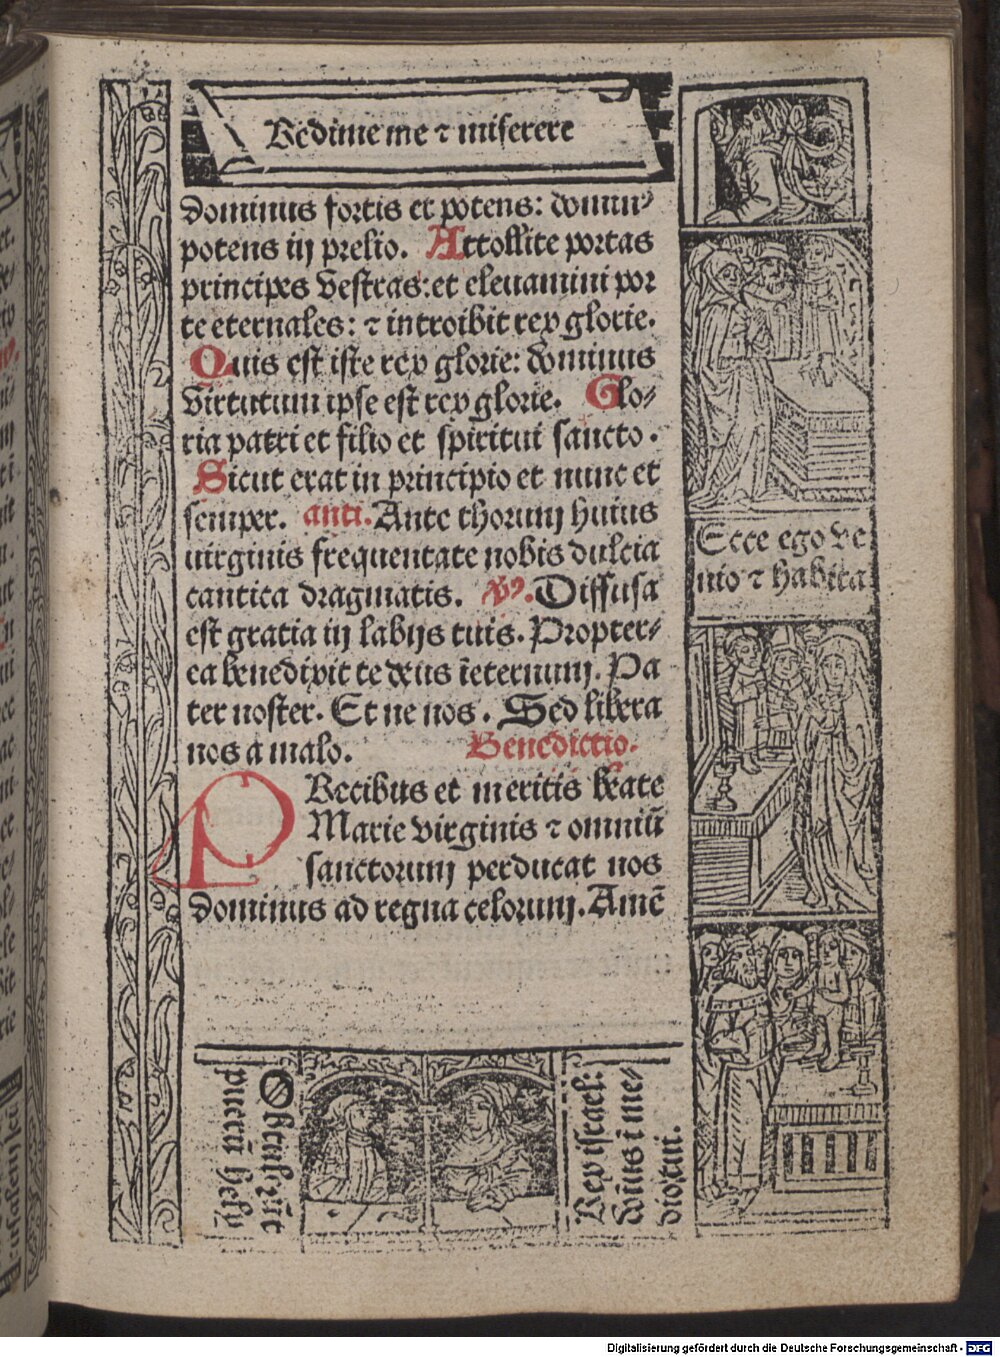 Redime me ⁊ miserere
dominus fortis et potens: domin⸗
potens in prelio. Attollite portas
principes vestras: et eleuamini por
te eternales: ⁊ introibit rex glorie.
Quis est iste rex glorie: dominus
virtutum ipse est rex glorie. Glo⸗
ria patri et filio et spiritui sancto.
Sicut erat in principio et nunc et
semper. anti. Ante thorum huius
uirginis frequentate nobis dulcia
cantica dragmatis. v̄. Diffusa
est gratia in labijs tuis. Propter⸗
ea benedixit te deus īeternum. Pa
ter noster. Et ne nos. Sed libera
nos a malo. Benedictio.
PRecibus et meritis beate
Marie virginis ⁊ omniū
sanctorum perducat nos
dominus ad regna celorum. Amē
Ecce ego ve
nio ⁊ habita
Obtulerūt
puerū hely
Rex israel:
dnus ī me⸗
dio tui.
Digitalisierung gefördert durch die Deutsche Forschungsgemeinschaft - DFG